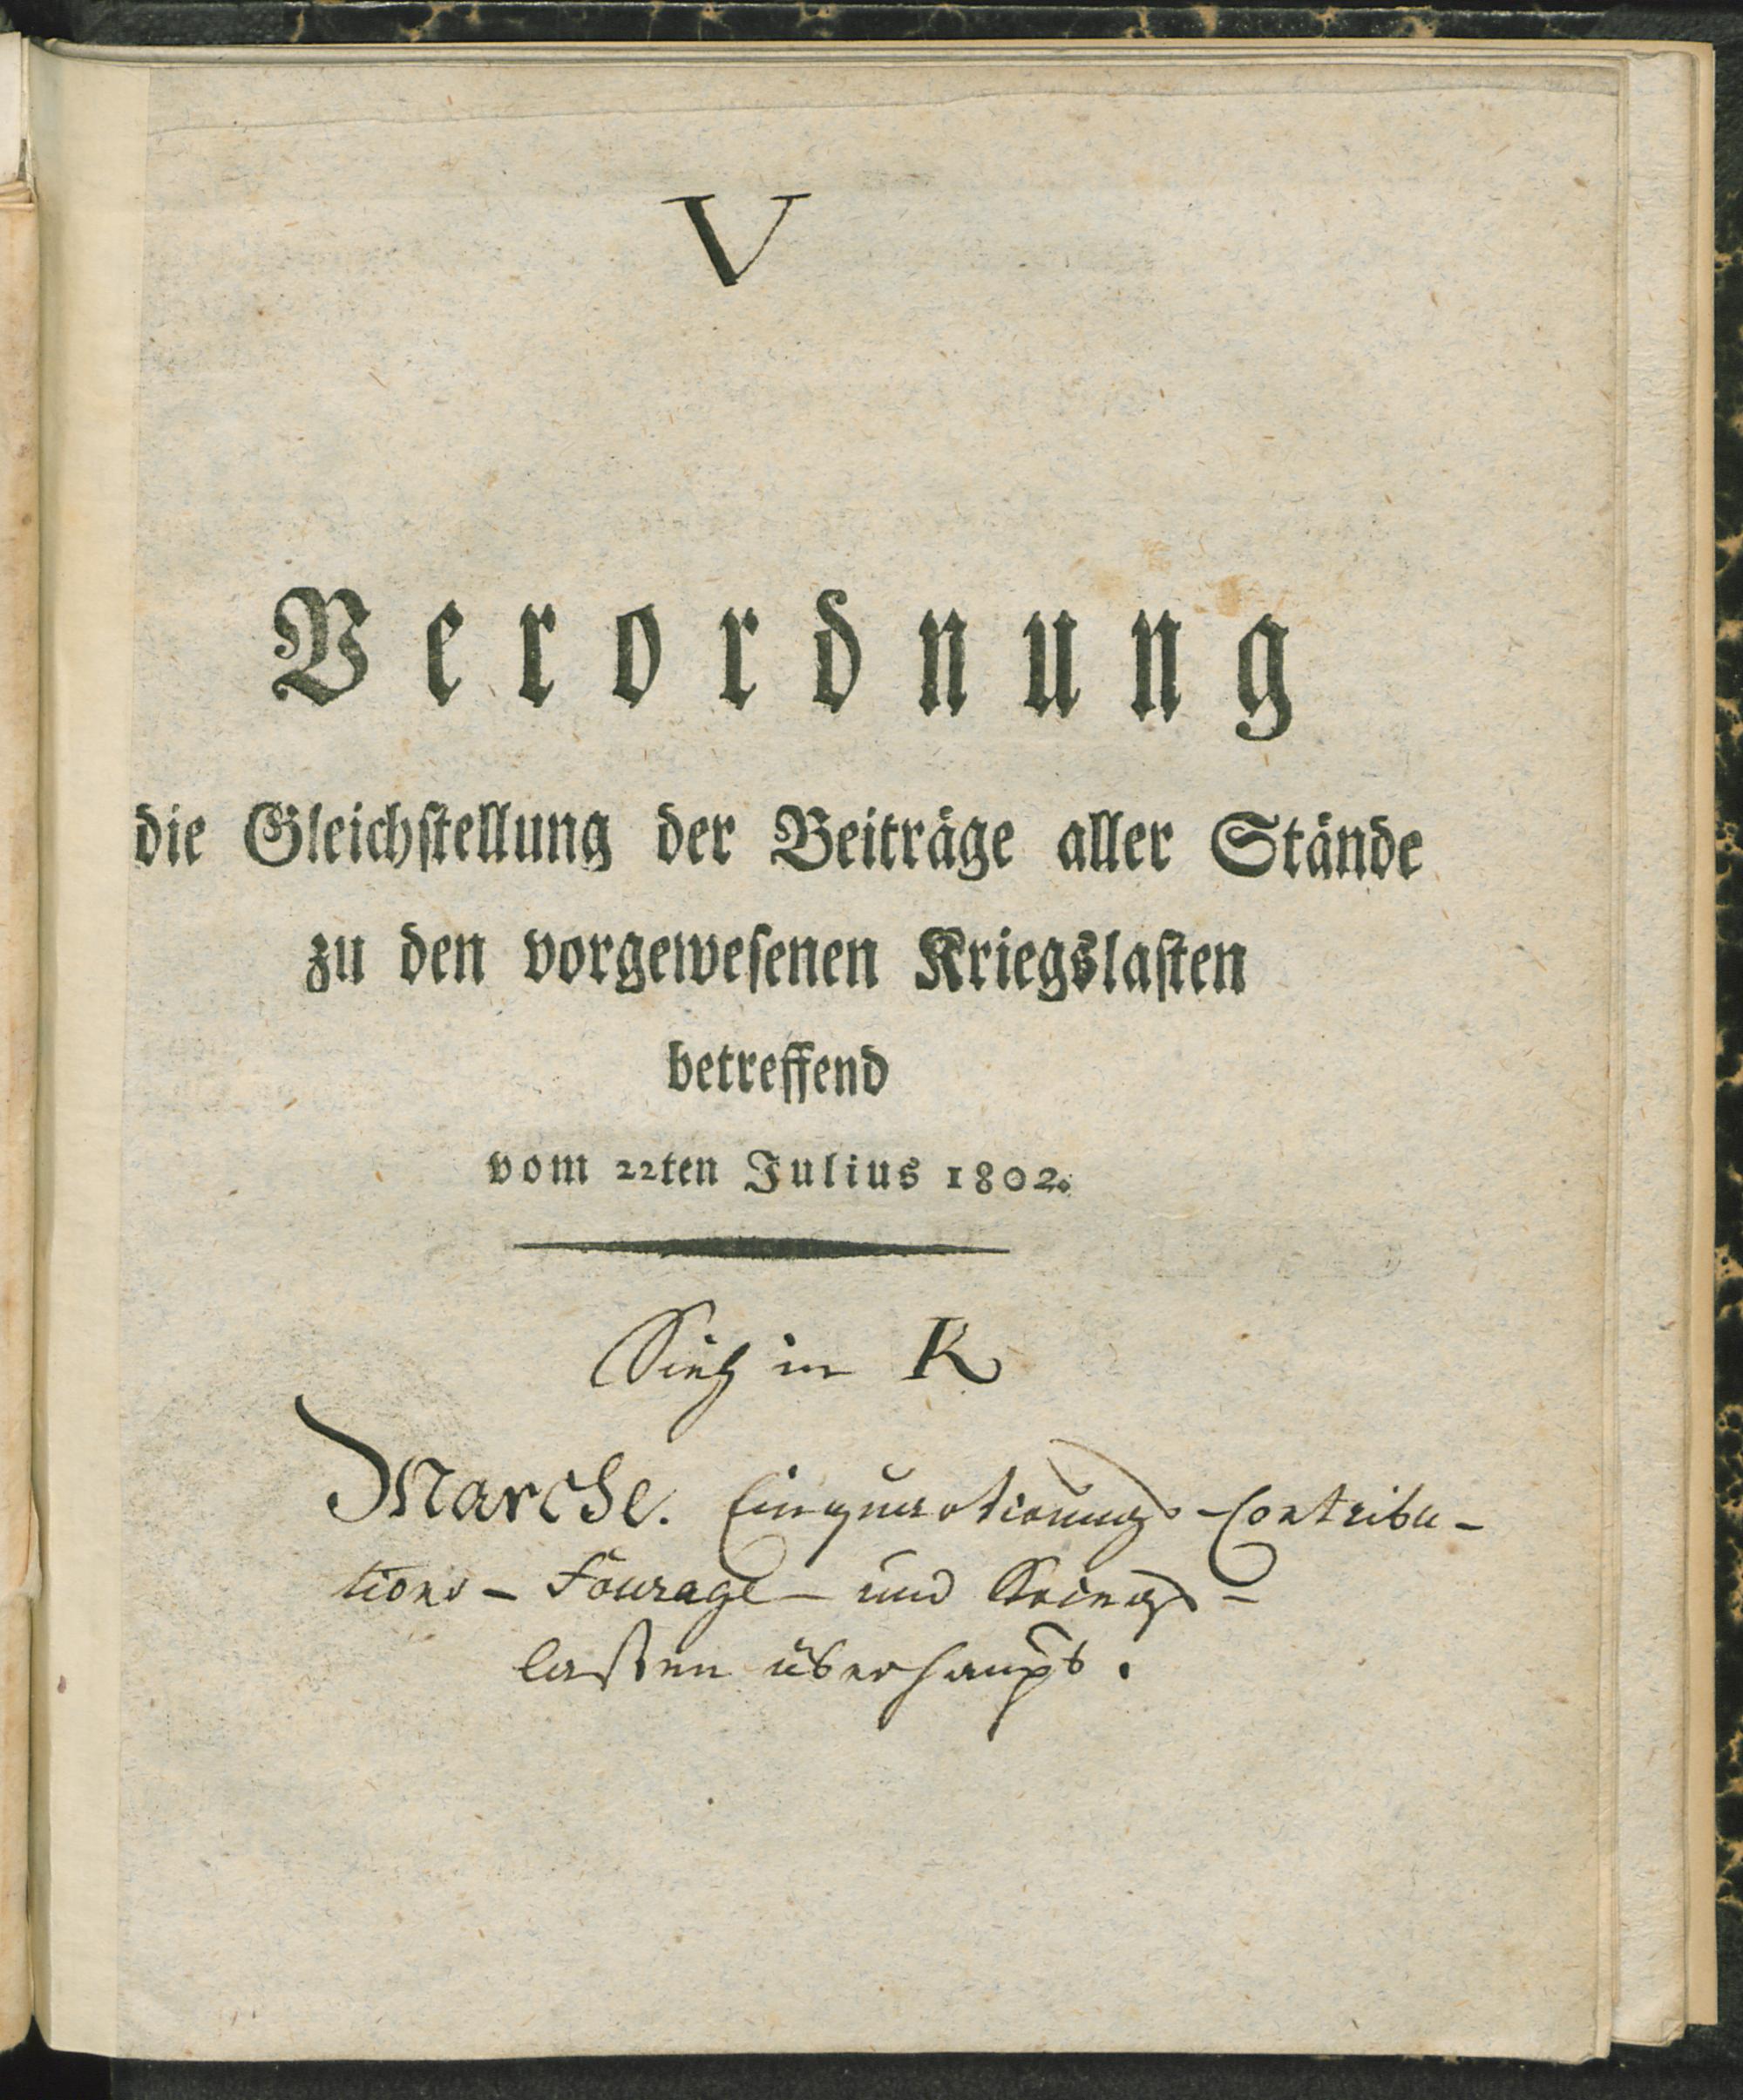 V
Verordnung
die Gleichstellung der Beiträge aller Stände
zu den vorgewesenen Kriegslasten
betreffend
vom 22ten Julius 1802.
Sieh in K
Marche. Einquartierungs-Contribu-
tions- Fourage- und Kriegs-
lasten überhaupt.